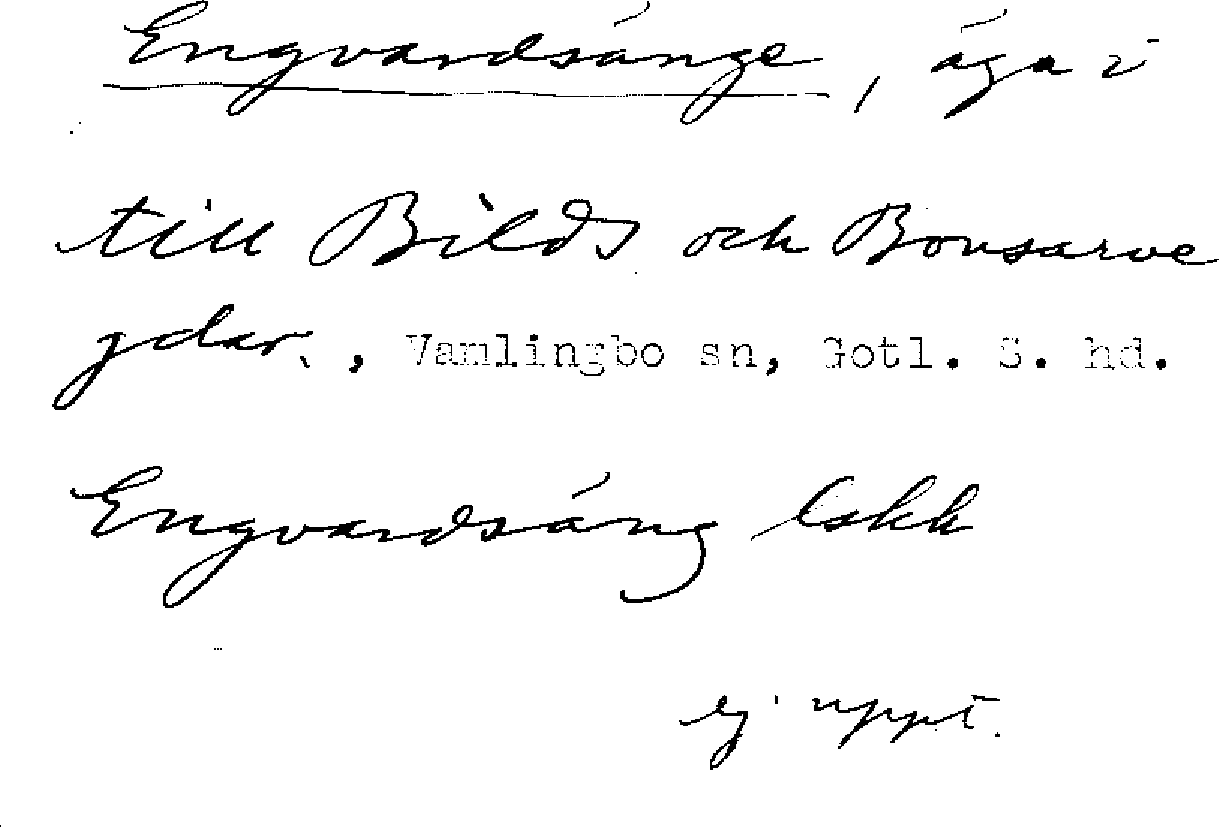 Engvardsänge, äga i
till Bilds och Bonsarve
gdar., Vamlingbo sn, Gotl. S. hd.
Engvardsäng
ej uppt.